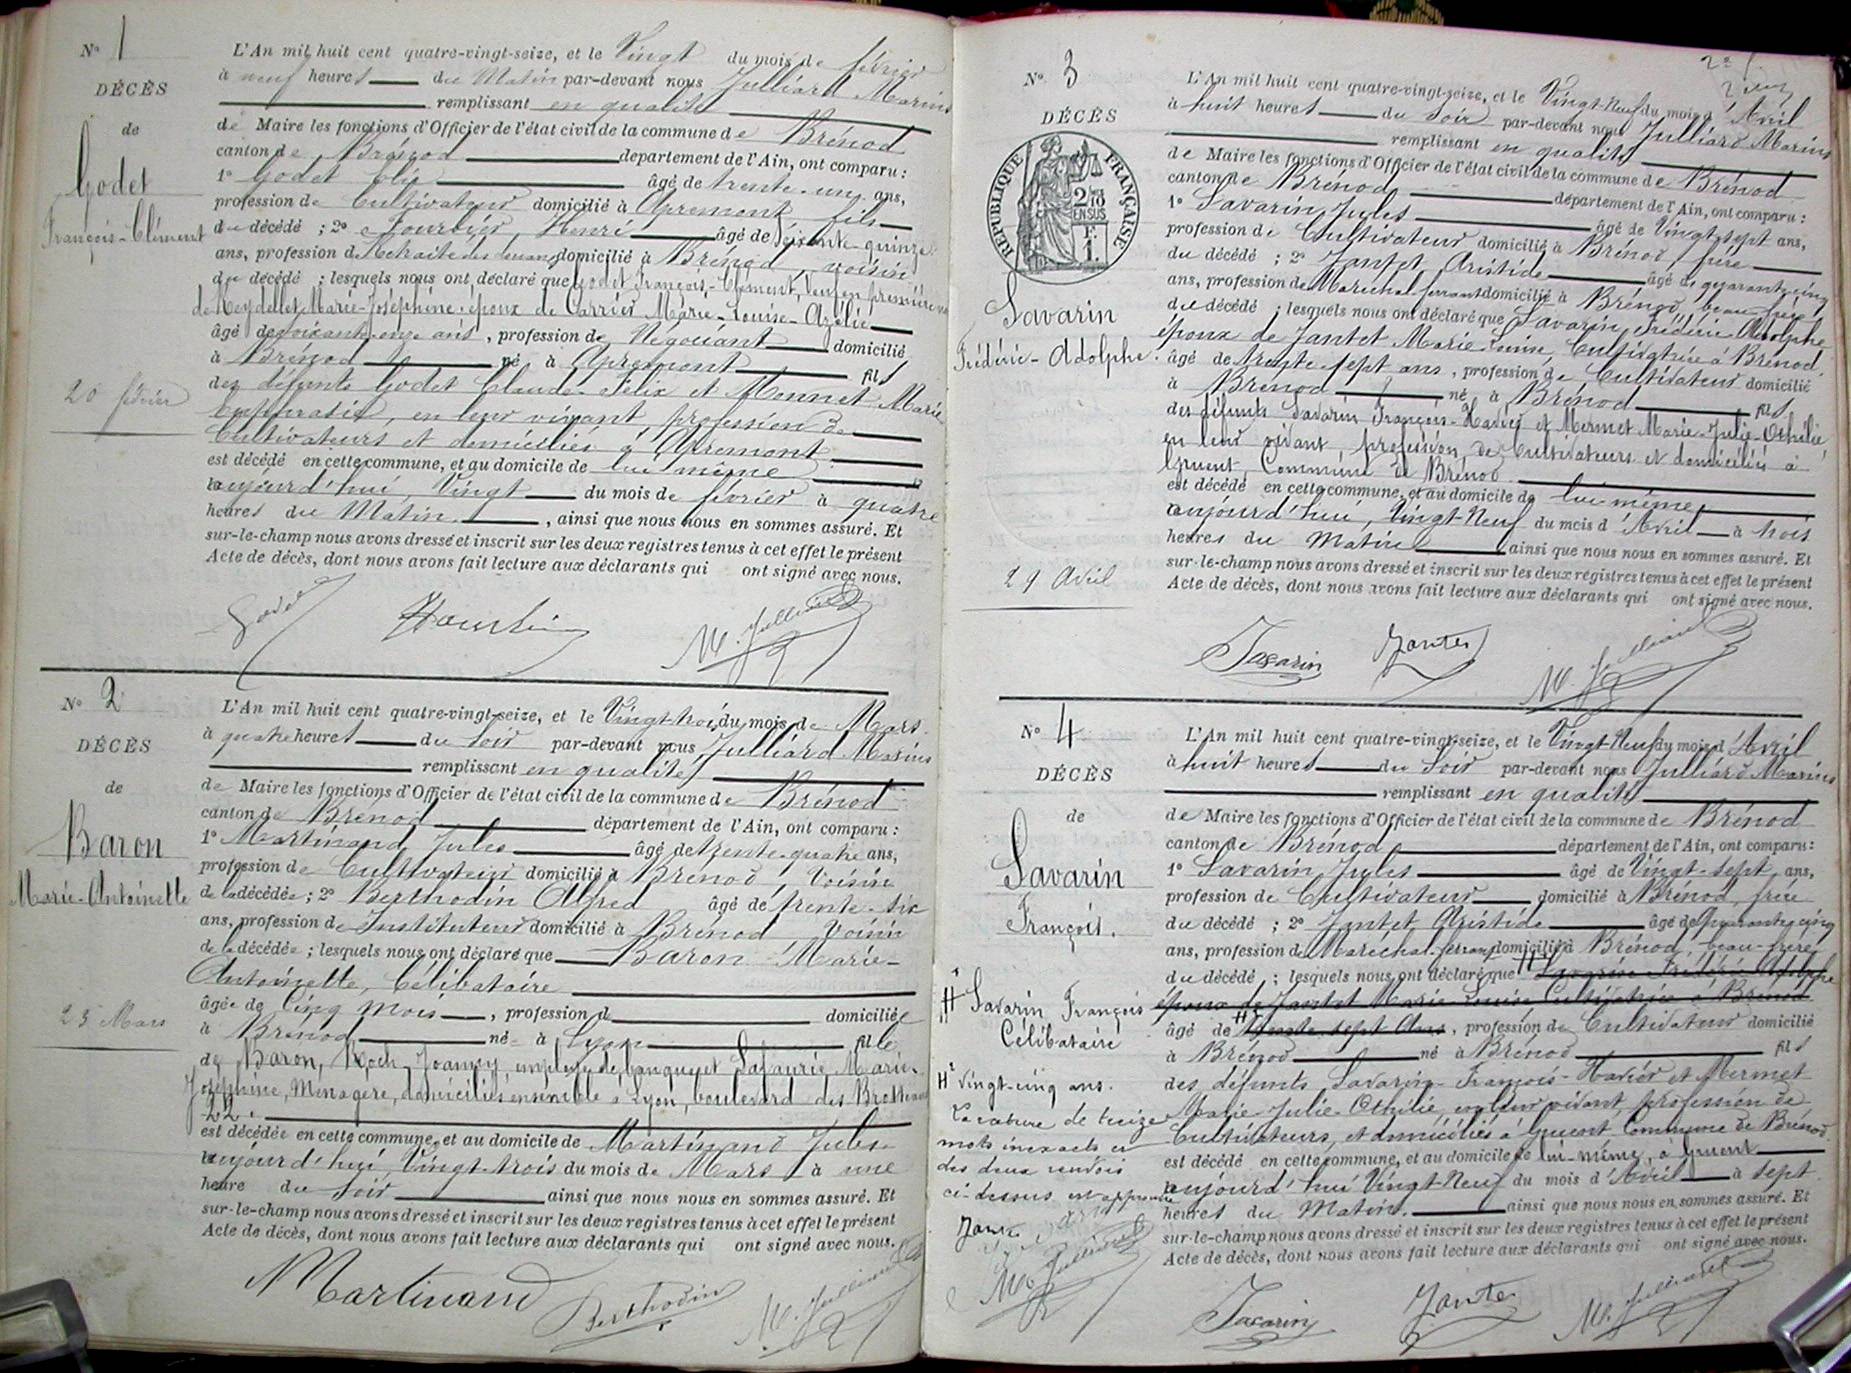 N° 1
DÉCÈS
de
Godet
François-Clément
20 février
L'An mil huit cent quatre-vingt-seize, et le Vingt du mois de février
à neuf heures du Matin par-devant nous Julliard Marius
remplissant en qualité
de Maire les fonctions d'Officier de l'état civil de la commune de Brénod
canton de Brénod département de l'Ain, ont comparu :
1° Godet âgé de trente-un ans,
profession de Cultivateur domicilié à Apremont fils
du décédé ; 2° Henri âgé de Soixante-quinze
ans, profession de Retraité des douanes domicilié à Brénod voisin
du décédé ; lesquels nous ont déclaré que Godet François-Clément, Veuf en première
de Meydellet Marie-Joséphine époux de Carrier Marie-Louise-Azélie
âgé de soixante-onze ans, profession de Négociant domicilié
à Brénod né à Apremont fils
des défunts Godet Claude-Félix et Monnet Marie
en leur vivant, profession de
Cultivateurs et domiciliés à Apremont
est décédé en cette commune, et au domicile de lui même
aujourd'hui, Vingt du mois de février à quatre
heures du Matin , ainsi que nous nous en sommes assuré. Et
sur-le-champ nous avons dressé et inscrit sur les deux registres tenus à cet effet le présent
Acte de décès, dont nous avons fait lecture aux déclarants qui ont signé avec nous.
Godet M. Julliard
N° 2
DÉCÈS
de
Baron
Marie-Antoinette
23 Mars
L'An mil huit cent quatre-vingt-seize, et le Vingt-trois du mois de Mars
à quatre heures du Soir par-devant nous Julliard Marius
remplissant en qualité
de Maire les fonctions d'Officier de l'état civil de la commune de Brénod
canton de Brénod département de l'Ain, ont comparu :
1° Martinand Jules âgé de trente-quatre ans,
profession de Cultivateur domicilié à Brénod Voisin
de la décédée ; 2° Berthodin Alfred âgé de trente-six
ans, profession de Instituteur domicilié à Brénod voisin
de la décédée ; lesquels nous ont déclaré que Baron Marie-
Antoinette, Célibataire
âgée de Cinq mois , profession d domiciliée
à Brénod née à Lyon fille
de Baron, Roch Joanny employé de banque et Lafaurie Marie-
Joséphine, Ménagère, domiciliés ensemble à Lyon, boulevard des Brotteaux
22
est décédée en cette commune, et au domicile de Martinand Jules
aujourd'hui, Vingt-trois du mois de Mars à une
heure du Soir ainsi que nous nous en sommes assuré. Et
sur-le-champ nous avons dressé et inscrit sur les deux registres tenus à cet effet le présent
Acte de décès, dont nous avons fait lecture aux déclarants qui ont signé avec nous.
Martinand Berthodin M. Julliard
N° 3
DÉCÈS
RÉPUBLIQUE FRANÇAISE
2/10
EN SUS
F.
1.
Savarin
Frédéric-Adolphe.
29 Avril
L'An mil huit cent quatre-vingt-seize, et le Vingt-Neuf du mois d'Avril
à huit heures du Soir par-devant nous Julliard Marius
remplissant en qualité
de Maire les fonctions d'Officier de l'état civil de la commune de Brénod
canton de Brénod département de l'Ain, ont comparu :
1° Savarin Jules âgé de Vingt-sept ans,
profession de Cultivateur domicilié à Brénod frère
du décédé ; 2° Jantet Aristide âgé de quarante-cinq
ans, profession de Maréchal ferrant domicilié à Brénod beau-frère
du décédé ; lesquels nous ont déclaré que Savarin Frédéric-Adolphe
époux de Jantet Marie-Louise, Cultivatrice à Brénod.
âgé de trente-sept ans, profession de Cultivateur domicilié
à Brénod né à Brénod fils
des défunts Savarin François-Xavier et Mermet Marie-Julie-Othilie
en leur vivant, profession de Cultivateurs et domiciliés à
Commune de Brénod
est décédé en cette commune, et au domicile de lui-même
aujourd'hui, Vingt-Neuf du mois d'Avril à trois
heures du Matin ainsi que nous nous en sommes assuré. Et
sur-le-champ nous avons dressé et inscrit sur les deux registres tenus à cet effet le présent
Acte de décès, dont nous avons fait lecture aux déclarants qui ont signé avec nous.
Savarin Jantet M. Julliard
N° 4
DÉCÈS
de
Savarin
François.
Savarin François
Célibataire
vingt-cinq ans.
La rature de treize
mots inexacts et
des deux renvois
ci-dessus est approuvée
Jantet
M. Julliard
L'An mil huit cent quatre-vingt-seize, et le Vingt-Neuf du mois d'Avril
à huit heures du Soir par-devant nous Julliard Marius
remplissant en qualité
de Maire les fonctions d'Officier de l'état civil de la commune de Brénod
canton de Brénod département de l'Ain, ont comparu :
1° Savarin Jules âgé de Vingt-sept ans,
profession de Cultivateur domicilié à Brénod, frère
du décédé ; 2° Jantet Aristide âgé de Quarante-cinq
ans, profession de Maréchal ferrant domicilié à Brénod beau-frère
du décédé ; lesquels nous ont déclaré que Savarin Frédéric Adolphe
époux de Jantet Marie-Louise Cultivatrice à Brénod
âgé de trente sept ans, profession de Cultivateur domicilié
à Brénod né à Brénod fils
des défunts Savarin François-Xavier et Mermet
Marie-Julie-Othilie, en leur vivant, profession de
Cultivateurs, et domiciliés à Commune de Brénod
est décédé en cette commune, et au domicile de lui-même, à
aujourd'hui Vingt-Neuf du mois d'Avril à sept
heures du Matin. ainsi que nous nous en sommes assuré. Et
sur-le-champ nous avons dressé et inscrit sur les deux registres tenus à cet effet le présent
Acte de décès, dont nous avons fait lecture aux déclarants qui ont signé avec nous.
Savarin Jantet M. Julliard